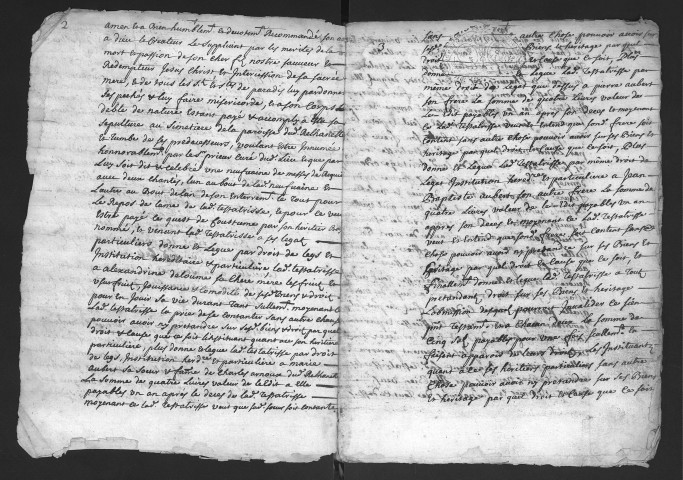 2
amen et a Bien humblem.t et devotem.t Recommandé son ame
a dieu le Createur le Suppliant par les merittes de la
mort et passion de son cher filz nostre sauveur et
Redempteur Jesus Christ et Intercession de sa sacrée
mere, et de tous les s.ts et s.tes de paradis luy pardonner
Ses pechés et luy faire misericorde, et a son Corps
de nature et estre sa
Sepulture au Simetiere de la paroisse
le tumbe de ses predecesseurs, voulant estre Innumée
honnorablem.t par les prieur curé dud. lieu et que par
Luy soit dit et celebré une neufvaine de messes de Requie
avec deux chantés, lun au bout de lad. neufvaine et
Lautre au Bout de lan de son enterrem.t le tout pour
Le Repos de lame de lad. testatrisse, et pour ce veut
estre payé ce quest de Coustume par son heritier
nommé, et venant lad. testatrisse a ses legat
particuliers donne et Legue par droit de legs et
Institution hereditaire et particuliere lad. testatrisse
a alexandrine deloume sa chere mere les fruit et
usufruit, Jouissance et Comodité de ses biens et droit
pour en Jouir sa vie durant tant sullem.t, moyenant ce
Lad. testatrisse la prie de se contanter sans autre chose
pouvoir avoir ny pretandre sur ses biens et droit par quel
droit et Cause que ce soit Linstituant quant a ce son heritiere
particuliere, plus donne et legue lad. testatrisse par droit
de legs, Institution hered.re et particuliere a marie
aubert sa Soeur et femme de Charles arnoux
La somme de quatre livres valeur de le dit a elle
payables un an apres le deces de lad. testatrisse
moyenant ce lad. testatrisse veut que sad. soeur soit contante
3
sans autre chose pouvoir avoir sur
ses Biens et heritage par quel
droit et Cause que ce soit, plus
donne et Legue lad. testatrisse par
mesme droit de Legat que dessus a pierre aubert
son frere la somme de quatre Livres valeur de
Le dit payables un an apres son deces et moyenant
ce Lad. testatrisse veut et entend que sond. frere soit
Contant sans autre Chose pouvoir avoir sur ses Biens et
heritage par quel droit et Cause que ce soit, Plus
donne et Legue lad. testatrisse par mesme droit de
Legat Institution hered.re et particuliere a Jean
Baptiste aubert son autre frere la somme de
quatre Livres valeur de le dit payables un an
apres son deces et moyenant ce lad. testatrisse
veut et entend que sond. frere soit Contant sans autre
chose pouvoir avoir ny pretandre sur ses Biens et
heritage par quel droit et Cause que ce soit, et
finallem.t donne et legue lad. testatrisse a tout
pretendant droit sur ses Biens et heritage
Lobmission desquels pourroit Jnvalider ce sien
pnt testam.t a Chacun deux la somme de
Cinq sols payables pour une fois seullem.t
faisant apparoir de leurs droits et les Instituant
quant a ce ses heritiers particuliers sans autre
Chose pouvoir avoir ny pretandre sur ses Biens
et heritage par quel droit et Cause que ce soit